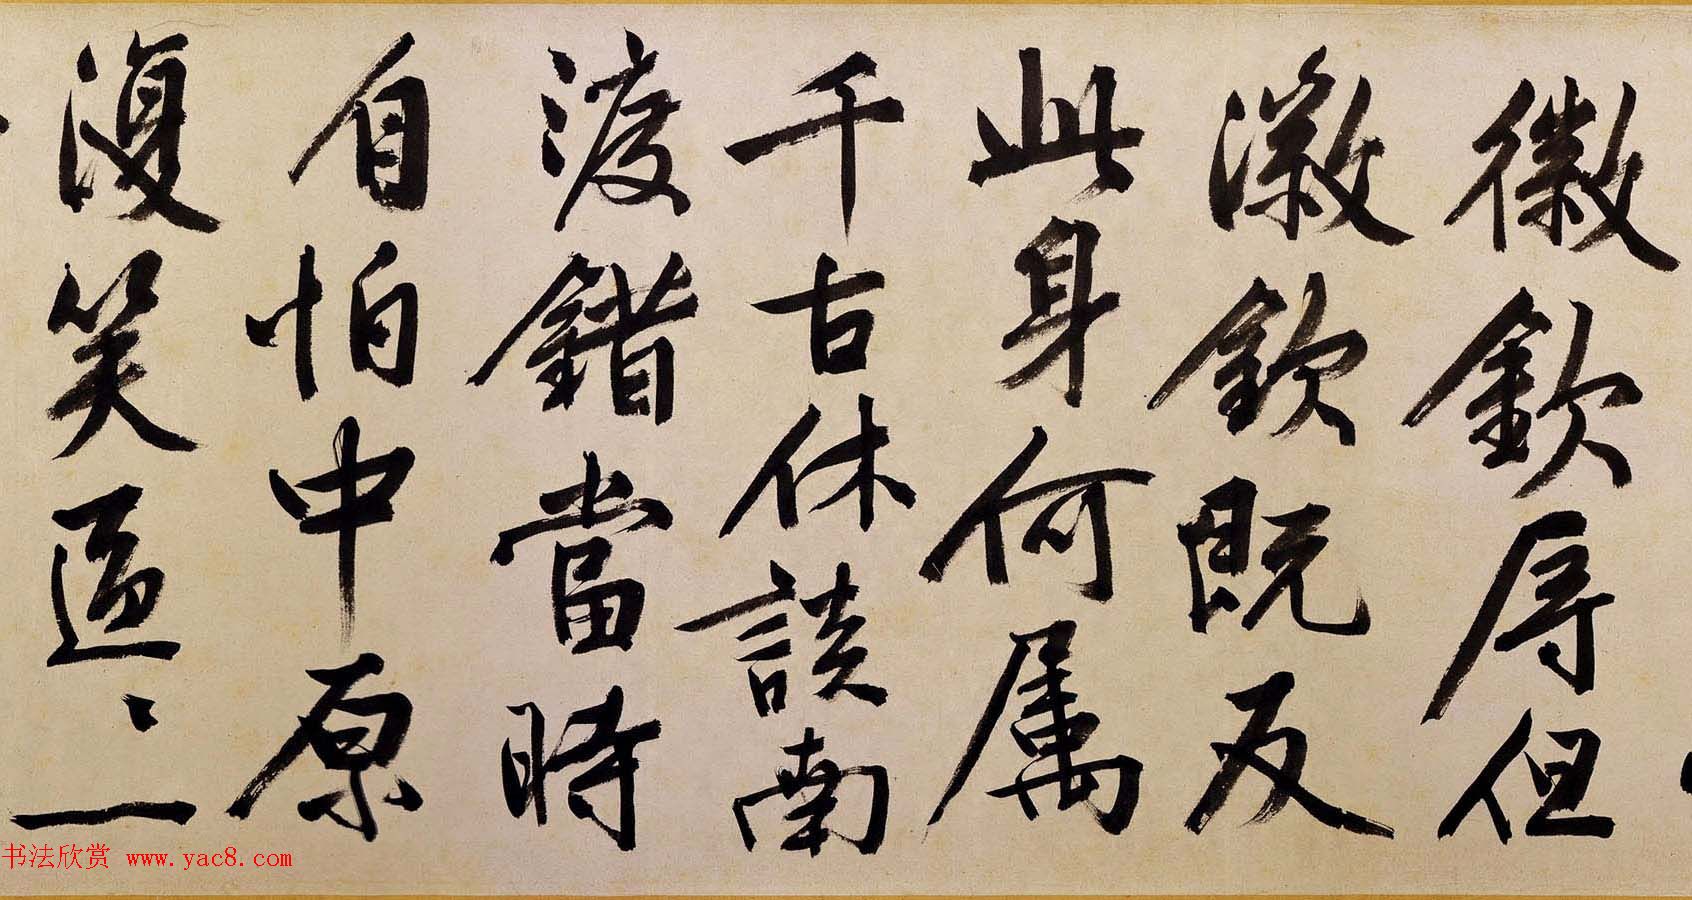 徽欽辱但
徽欽既反
此身何屬
千古休談南
渡錯當時
自怕中原
復笑區〻一
书法欣赏 www.yac8.com